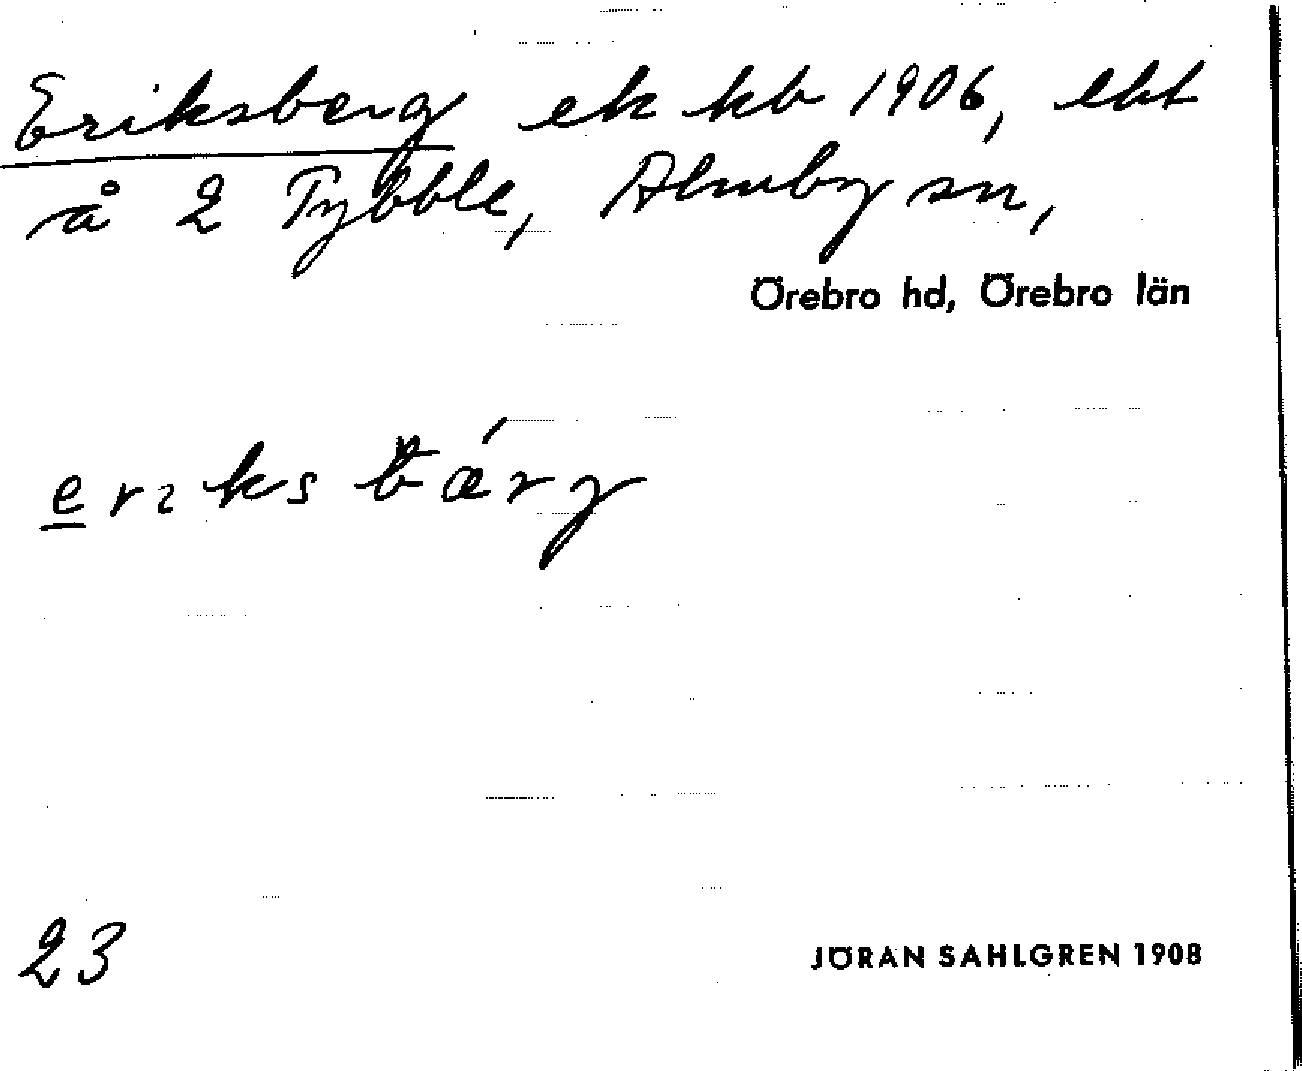 Eriksberg ek kb 1906, ebt
å 2 Tybble, Almby sn,
Örebro hd, Örebro län
eriksbǽrg
23
JÖRAN SAHLGREN 1908